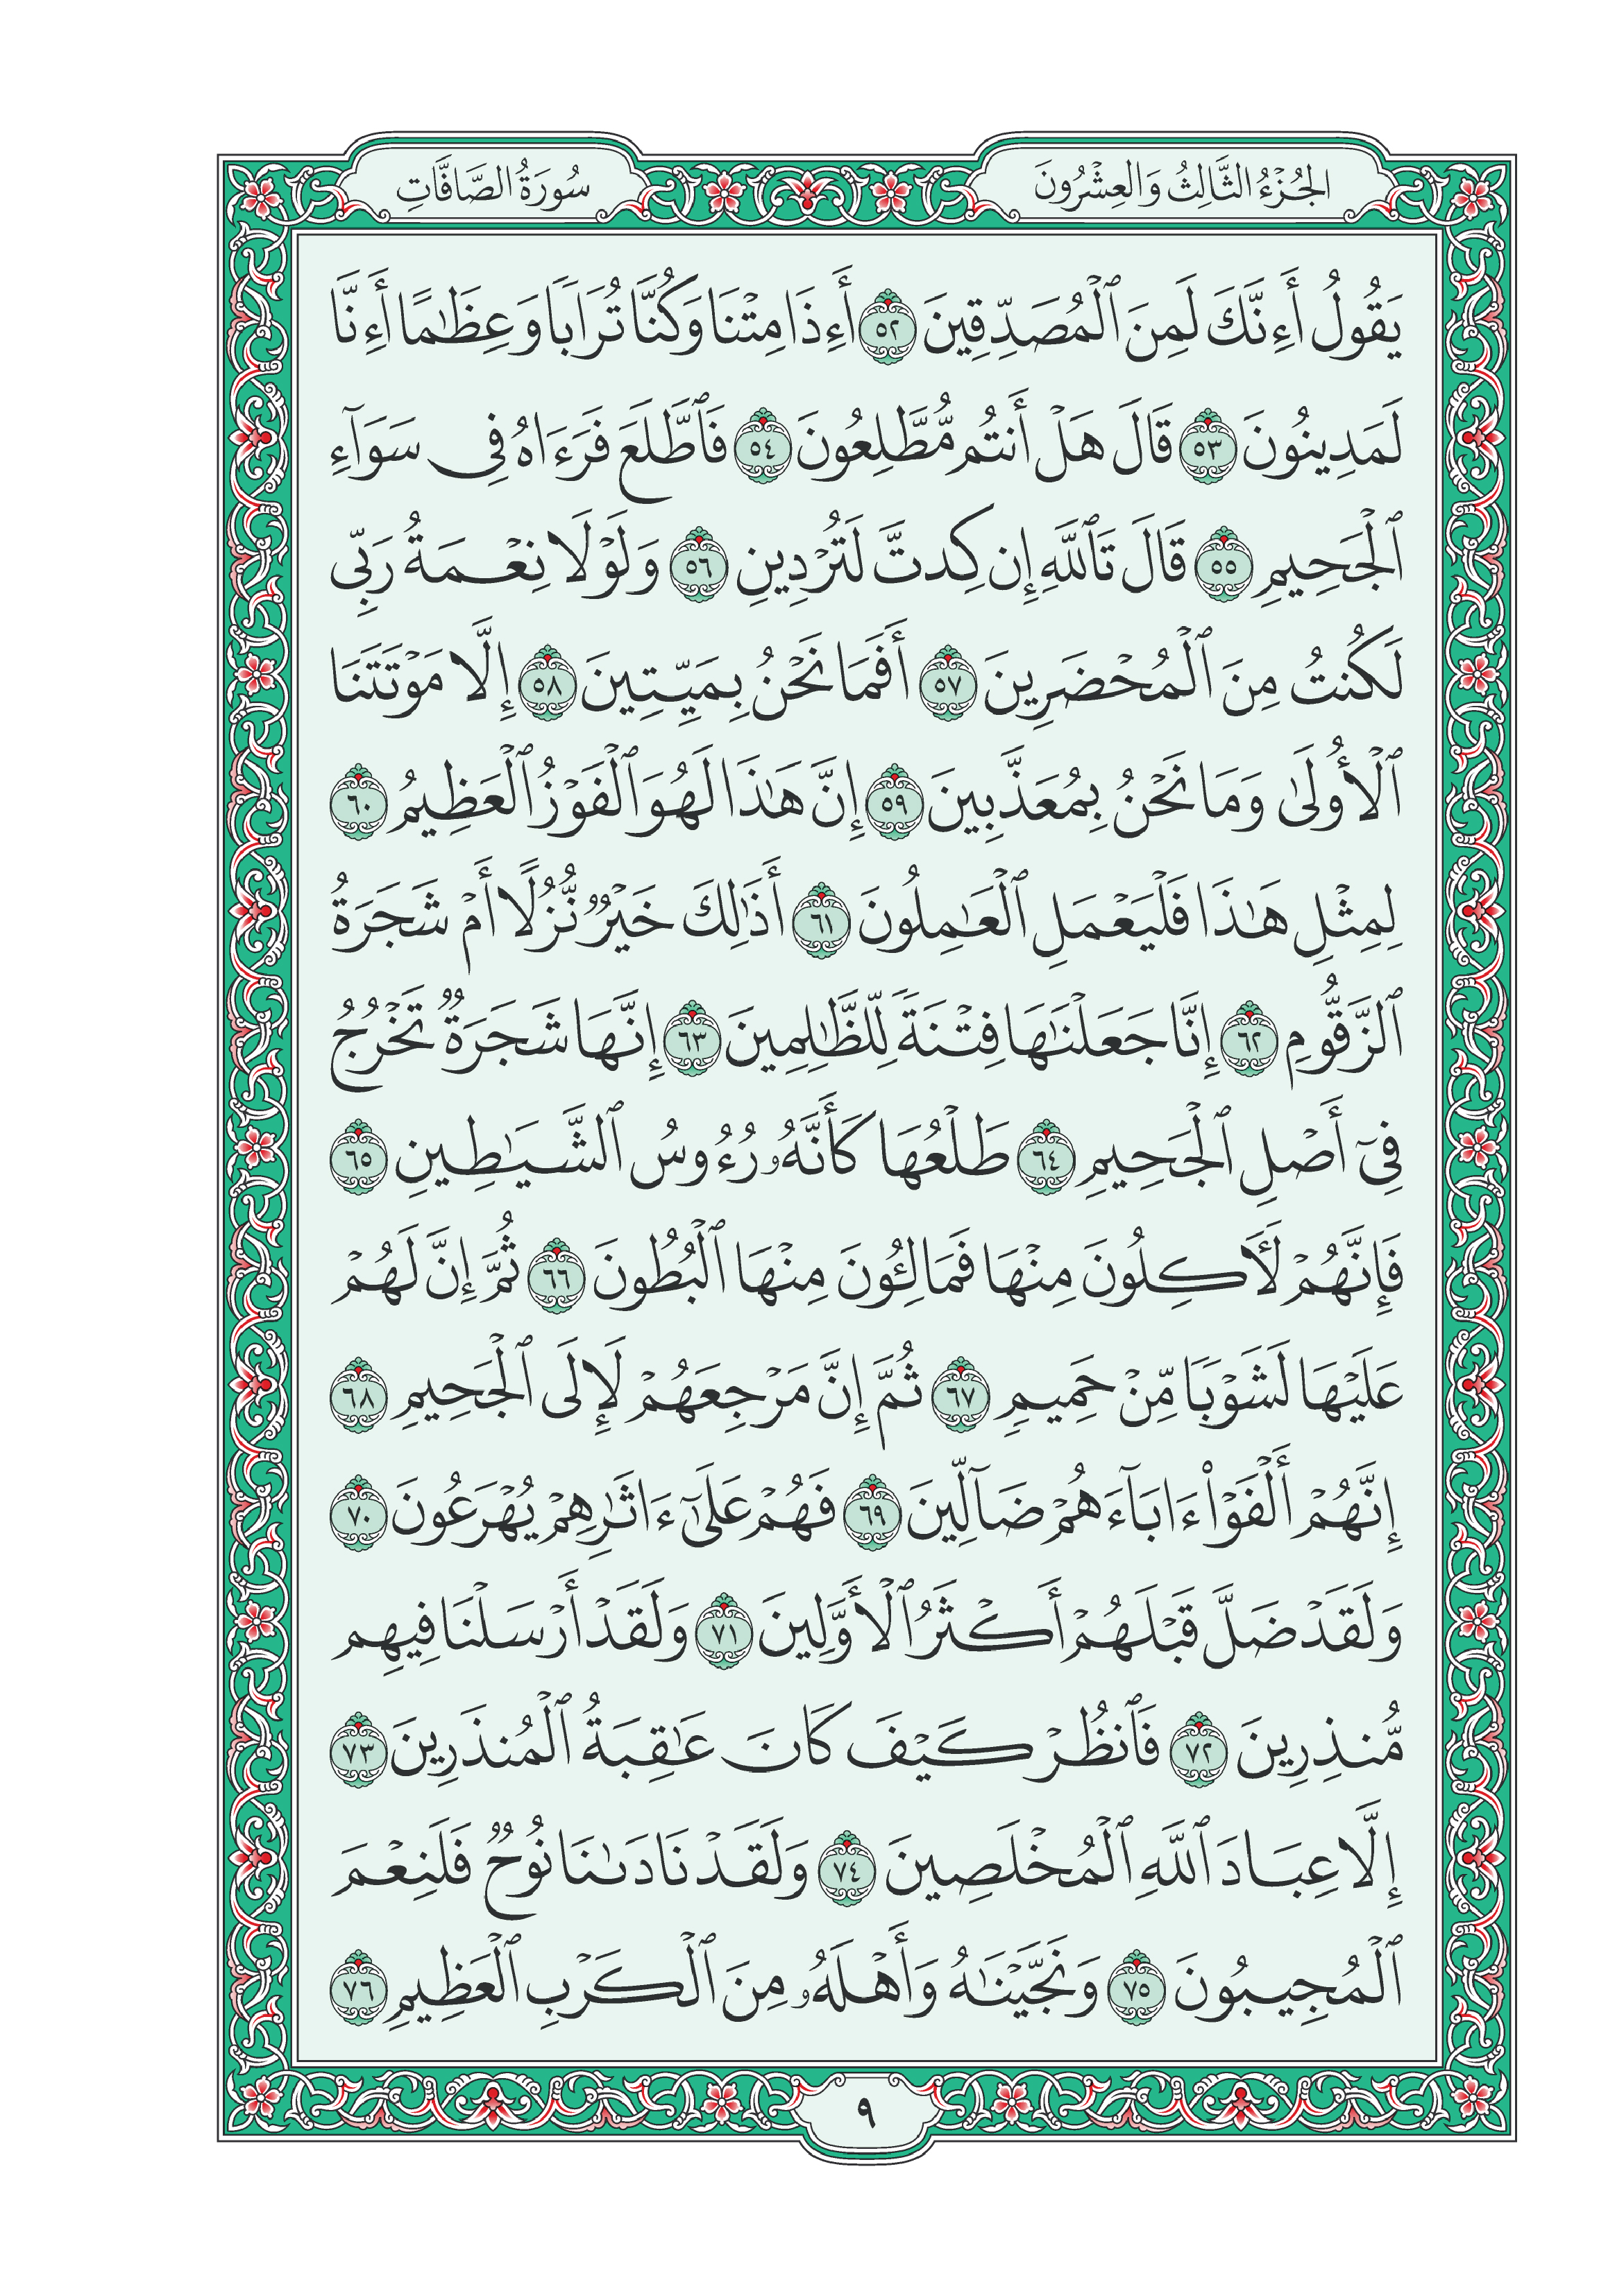 الجُزْءُ الثَّالِثُ وَالعِشْرُونَ
سُورَةُ الصَّافَّاتِ
يَقُولُ أَءِنَّكَ لَمِنَ ٱلْمُصَدِّقِينَ ٥٢ أَءِذَا مِتْنَا وَكُنَّا تُرَابًا وَعِظَٰمًا أَءِنَّا
لَمَدِينُونَ ٥٣ قَالَ هَلْ أَنتُم مُّطَّلِعُونَ ٥٤ فَٱطَّلَعَ فَرَءَاهُ فِى سَوَآءِ
ٱلْجَحِيمِ ٥٥ قَالَ تَٱللَّهِ إِن كِدتَّ لَتُرْدِينِ ٥٦ وَلَوْلَا نِعْمَةُ رَبِّى
لَكُنتُ مِنَ ٱلْمُحْضَرِينَ ٥٧ أَفَمَا نَحْنُ بِمَيِّتِينَ ٥٨ إِلَّا مَوْتَتَنَا
ٱلْأُولَىٰ وَمَا نَحْنُ بِمُعَذَّبِينَ ٥٩ إِنَّ هَٰذَا لَهُوَ ٱلْفَوْزُ ٱلْعَظِيمُ ٦٠
لِمِثْلِ هَٰذَا فَلْيَعْمَلِ ٱلْعَٰمِلُونَ ٦١ أَذَٰلِكَ خَيْرٌ نُّزُلًا أَمْ شَجَرَةُ
ٱلزَّقُّومِ ٦٢ إِنَّا جَعَلْنَٰهَا فِتْنَةً لِّلظَّٰلِمِينَ ٦٣ إِنَّهَا شَجَرَةٌ تَخْرُجُ
فِىٓ أَصْلِ ٱلْجَحِيمِ ٦٤ طَلْعُهَا كَأَنَّهُۥ رُءُوسُ ٱلشَّيَٰطِينِ ٦٥
فَإِنَّهُمْ لَءَاكِلُونَ مِنْهَا فَمَالِـُٔونَ مِنْهَا ٱلْبُطُونَ ٦٦ ثُمَّ إِنَّ لَهُمْ
عَلَيْهَا لَشَوْبًا مِّنْ حَمِيمٍ ٦٧ ثُمَّ إِنَّ مَرْجِعَهُمْ لَإِلَى ٱلْجَحِيمِ ٦٨
إِنَّهُمْ أَلْفَوْا۟ ءَابَآءَهُمْ ضَآلِّينَ ٦٩ فَهُمْ عَلَىٰٓ ءَاثَٰرِهِمْ يُهْرَعُونَ ٧٠
وَلَقَدْ ضَلَّ قَبْلَهُمْ أَكْثَرُ ٱلْأَوَّلِينَ ٧١ وَلَقَدْ أَرْسَلْنَا فِيهِم
مُّنذِرِينَ ٧٢ فَٱنظُرْ كَيْفَ كَانَ عَٰقِبَةُ ٱلْمُنذَرِينَ ٧٣
إِلَّا عِبَادَ ٱللَّهِ ٱلْمُخْلَصِينَ ٧٤ وَلَقَدْ نَادَىٰنَا نُوحٌ فَلَنِعْمَ
ٱلْمُجِيبُونَ ٧٥ وَنَجَّيْنَٰهُ وَأَهْلَهُۥ مِنَ ٱلْكَرْبِ ٱلْعَظِيمِ ٧٦
٩